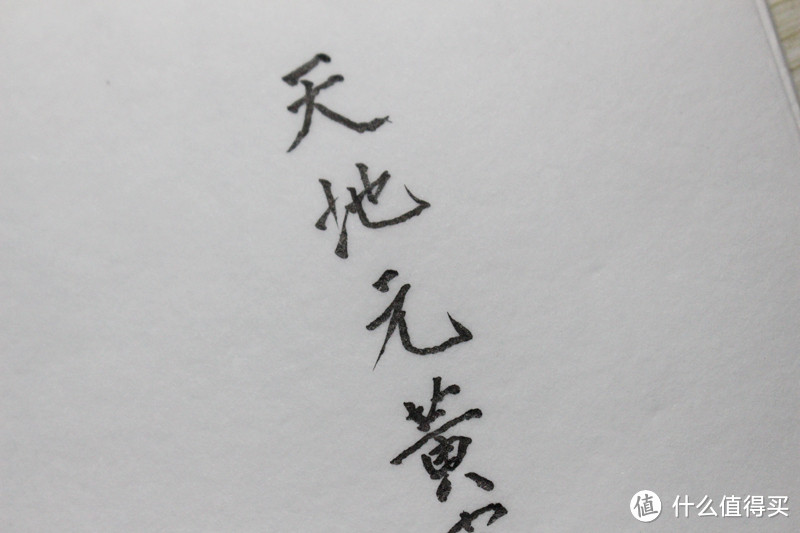 天地元黄
值 什么值得买